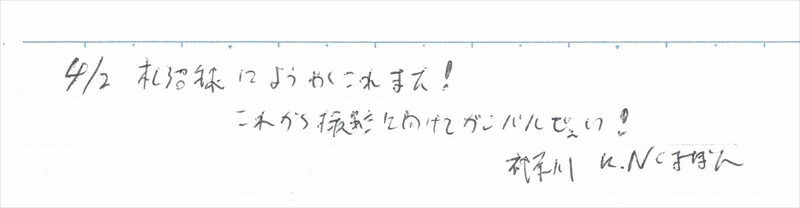 4/2 札沼線にようやくこれました!
これから撮影に向けてガンバルぜぃ!
神奈川 K.Nくまぽん